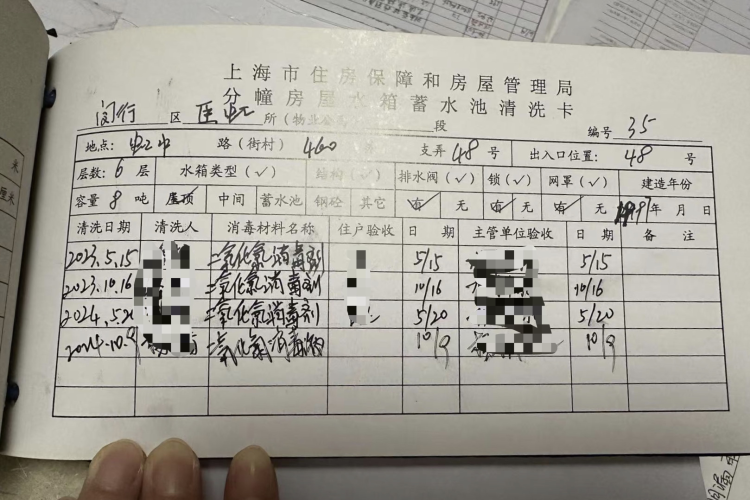 上海市住房保障和房屋管理局
分幢房屋水箱蓄水池清洗卡
闵行 区 所(物业 段 编号 35
地点: 路(街村) 460 支弄 48 号 出入口位置: 48 号
层数: 6 层 水箱类型(✓) 结构(✓) 排水阀(✓) 锁(✓) 网罩(✓) 建造年份
容量 8 吨 屋顶 中间 蓄水池 钢砼 其它 有 无 有 无 有 无 1997年 月 日
清洗日期 清洗人 消毒材料名称 住户验收 日期 主管单位验收 日期 备注
2023.5.15 二氧化氯消毒剂 5/15 5/15
2023.10.16 二氧化氯消毒剂 10/16 10/16
2024.5.20 二氧化氯消毒剂 5/20 5/20
2024.10.9 二氧化氯消毒剂 10/9 10/9